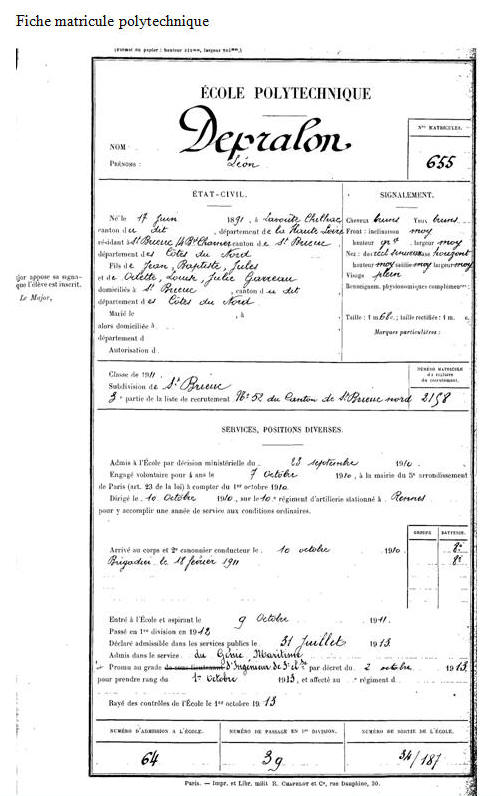 Fiche matricule polytechnique
(Format du papier : hauteur 31 cent, largeur 20
ÉCOLE POLYTECHNIQUE
Nos MATRICULES.
NOM
Depralon.
PRÉNOMS :
Léon
655
ÉTAT-CIVIL.
SIGNALEMENT.
Né le 17 Juin 1891, à Lavoûte Chilhac
canton du dit, département de la Haute Loire
résidant à St Brieuc canton de St Brieuc
département des Côtes du Nord
Fils de Jean, Baptiste, Jules
et de Odette, Louise, Julie Garreau
domiciliés à St Brieuc, canton du dit
département des Côtes du Nord
Marié le , à
alors domiciliée à
département d
Autorisation d
Cheveux bruns Yeux bruns
Front : inclinaison moy
hauteur gde largeur moy
Nez : dos rect sinueux base horizont
hauteur moy saillie moy largeur moy
Visage plein
Renseignem. physionomiques complémentres :
Taille : 1 m 66 c. ; taille rectifiée : 1 m. c.
Marques particulières :
jor appose sa signa-
que l'élève est inscrit.
Le Major,
Classe de 1911
Subdivision de St Brieuc
3e partie de la liste de recrutement No 52 du Canton de St Brieuc nord
NUMÉRO MATRICULE
du registre
du recrutement.
2158
SERVICES, POSITIONS DIVERSES.
Admis à l'École par décision ministérielle du 23 septembre 1910
Engagé volontaire pour 4 ans le 7 octobre 1910, à la mairie du 5e arrondissement
de Paris (art. 23 de la loi) à compter du 1er octobre 1910.
Dirigé le 10 Octobre 1910, sur le 10e régiment d'artillerie stationné à Rennes
pour y accomplir une année de service aux conditions ordinaires.
GROUPE BATTERIE.
Arrivé au corps et 2e canonnier conducteur le 10 octobre 1910 8e
Brigadier le 18 février 1911 8e
Entré à l'École et aspirant le 9 Octobre 1911.
Passé en 1re division en 1912
Déclaré admissible dans les services publics le 31 Juillet 1913.
Admis dans le service du Génie Maritime
Promu au grade de sous-lieutenant d'Ingénieur de 3e cl. par décret du 2 octobre 1913
pour prendre rang du 1er Octobre 1913, et affecté au e régiment d
Rayé des contrôles de l'École le 1er octobre 1913
NUMÉRO D'ADMISSION A L'ÉCOLE.
NUMÉRO DE PASSAGE EN 1re DIVISION.
NUMÉRO DE SORTIE DE L'ÉCOLE.
64
39
34/187
Paris. — Impr. et Libr. milit R. CHAPELOT et Ce, rue Dauphine, 30.